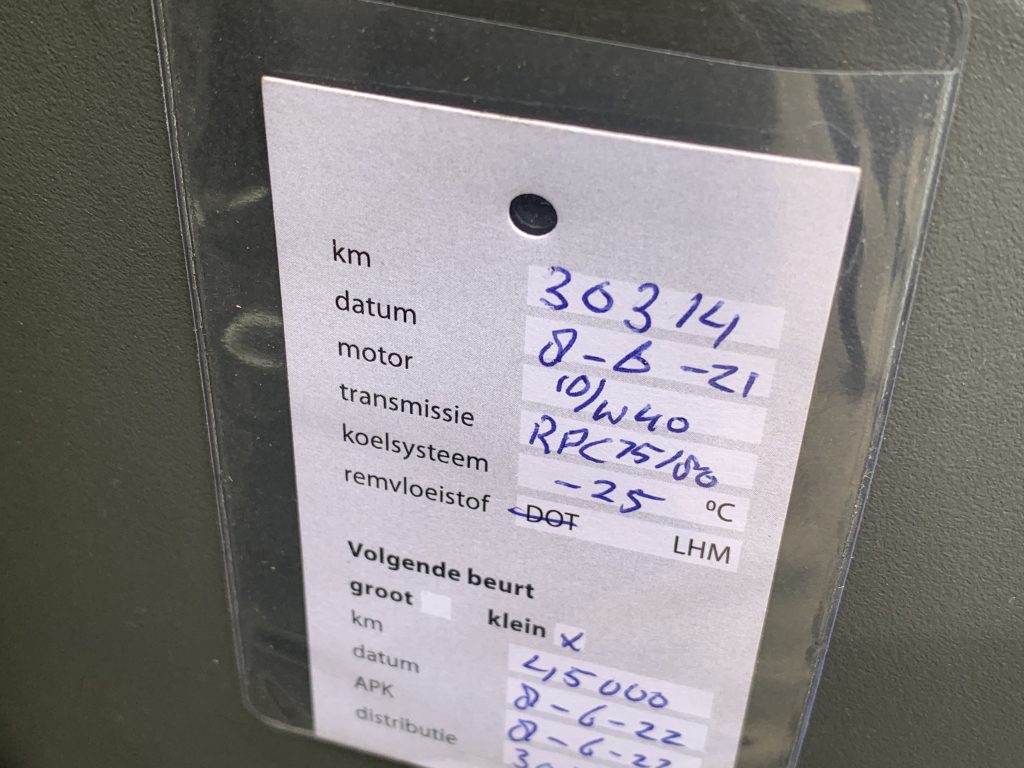 km 30314
datum 8-6-21
motor 10/W40
transmissie RPC 75/80
koelsysteem -25 ºC
remvloeistof DOT LHM
Volgende beurt
groot klein x
km 45000
datum 8-6-22
APK 8-6-22
distributie